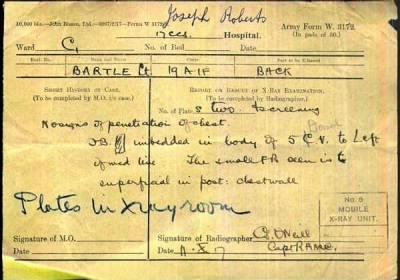 Joseph Roberts
10,000 Form W 3172 Army Form W. 3172.
17 CCS. Hospital. (In pads of 50.)
Ward C, No. of Bed
Regtl. No. Rank and Name Corps Part to be X-Rayed
BARTLE Lt 19 AIF BACK
SHORT HISTORY OF CASE. REPORT OR RESULT OF X-RAY EXAMINATION.
(To be completed by M.O. i/c case.) (To be completed by Radiographer).
No. of Plate, two screening
No signs of penetration of chest
F.B. imbedded in body of 5 C.V. to Left
of med line. The small F.B. seen is
superficial in post: chest wall
Plates in xray room
No. 8
MOBILE
X-RAY UNIT.
Signature of M.O. Signature of Radiographer O'Neill
Date Date X 17 Capt RAMC.